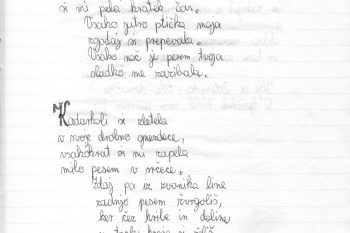 si mi pela kratek čas.
Vsako jutro ptička moja
zgodaj si prepevala.
Vsako noč je pesem tvoja
sladko me zazibala.
Kadarkoli si zletela
v svoje drobno gnezdece,
vsakokrat si mi zapela
milo pesem v srčece.
Zdaj pa iz zvonika line
zadnjo pesem žvrgoliš,
ker čez hribe in doline